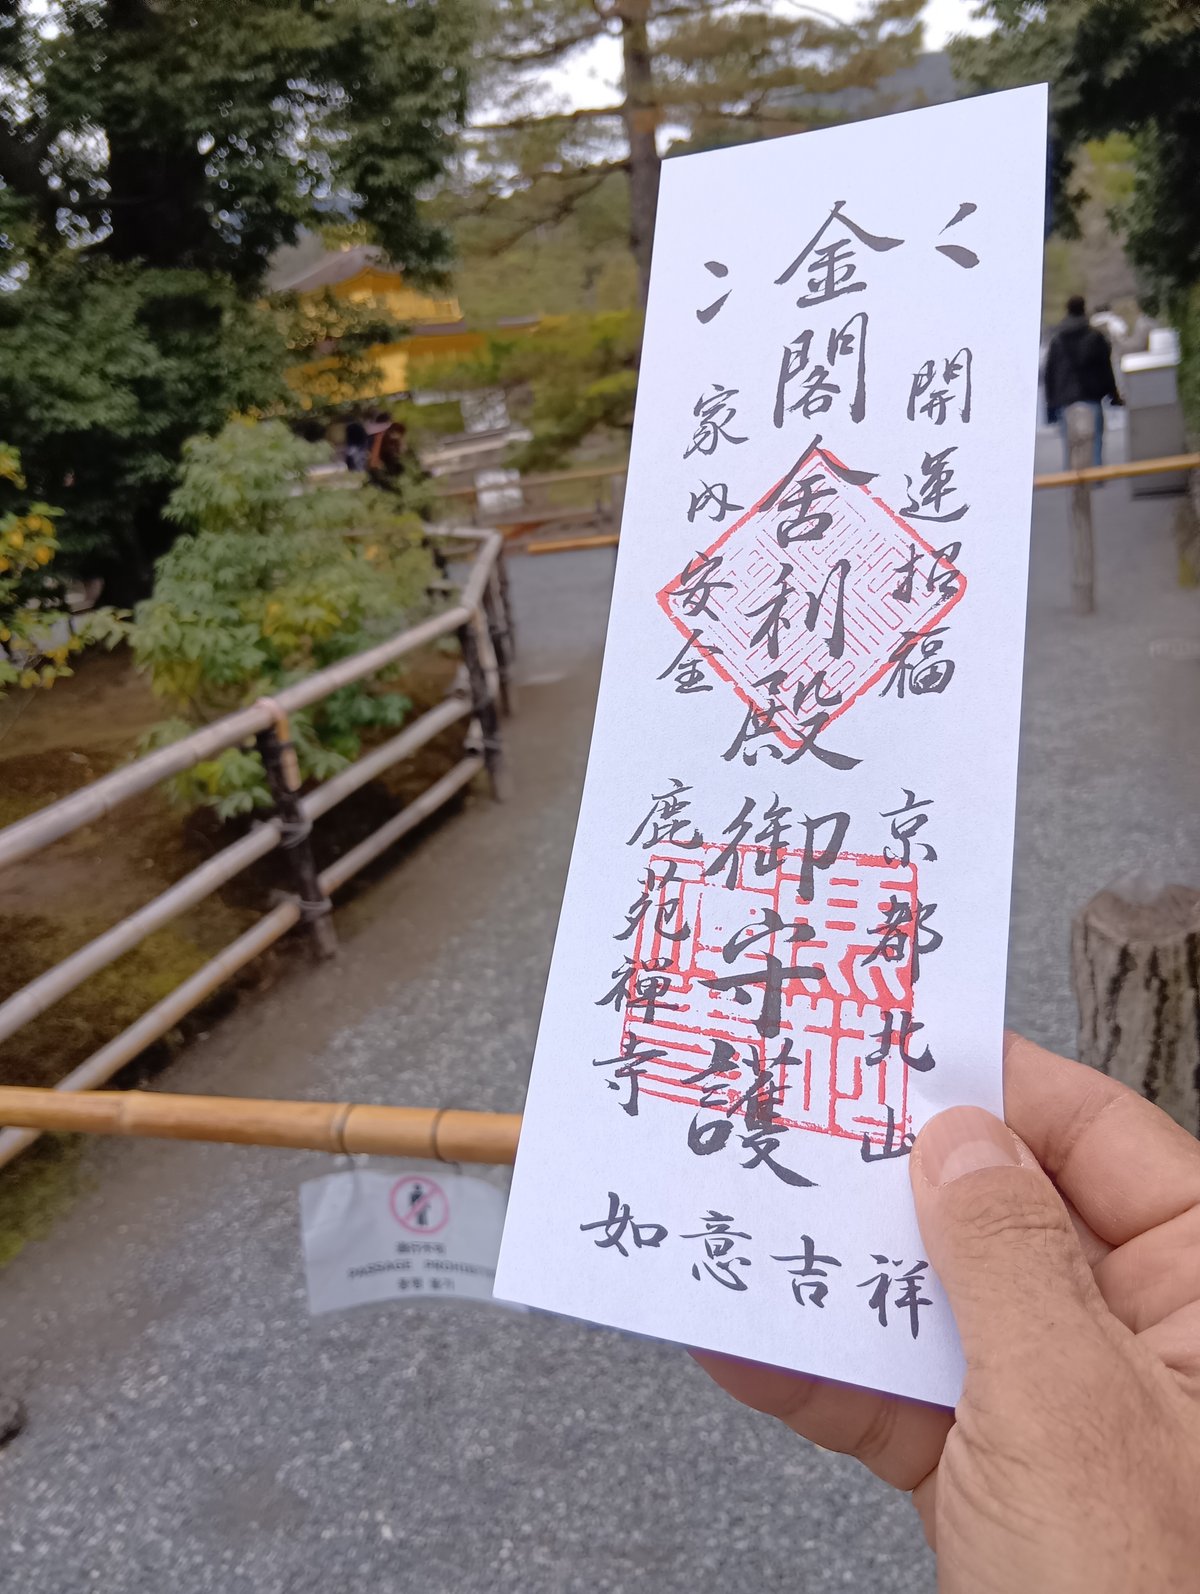 開運招福
京都北山
金閣舎利殿御守護
家内安全
鹿苑禅寺
如意吉祥
PASSAGE PROHIBITED